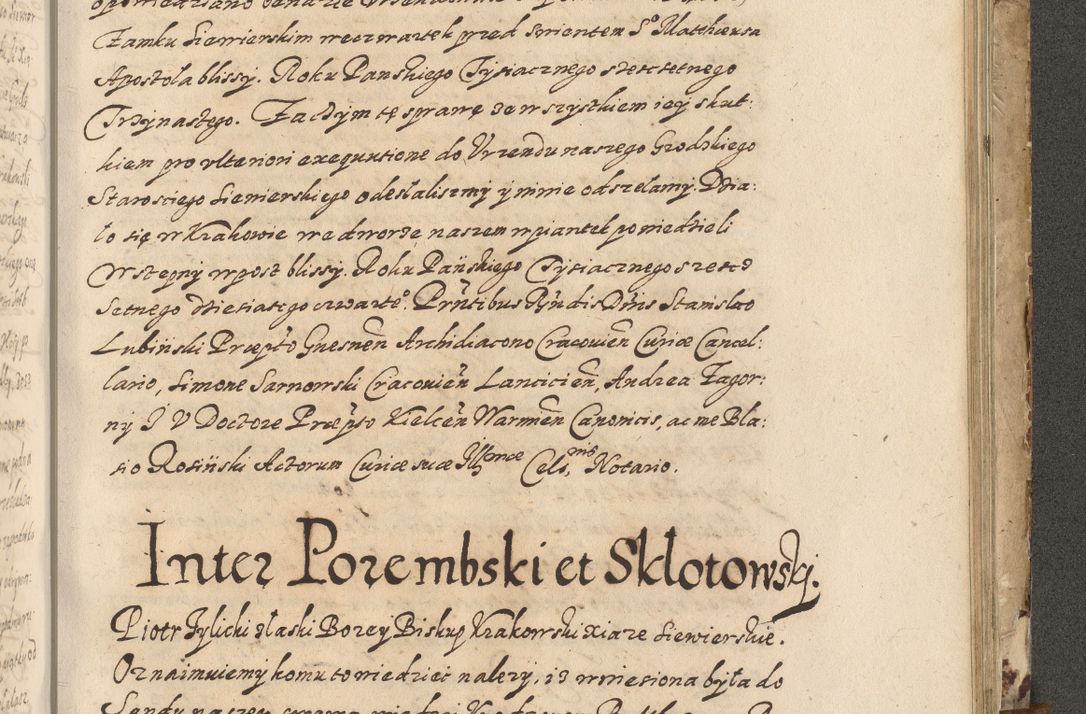 Zamku Siewierskim we czwartek przed swientem Sº Mattheusa
Apostoła blissy. Roku Panskiego Tysiacznego szescsetnego
Trzynastego. Zaczym tę sprawę ze wszystkiem iey skut:
kiem pro vlteriori exequutione do Vrzendu naszego Grodzkiego
Starosciego Siewierskiego odesłaliszmy y ninie odszelamy. Dzia:
ło się w Krakowie we dworze naszem w piantek po niedzieli
Wstępny w post blissy. Roku Pańskiego Tysiacznego szesc
setnego dziesiątego czwarteº. Prñtibus Rñdis Dñis Stanislao
Lubiński Præpto Gnesnen̄ Archidiacono Cracouien̄ Curiæ Cancel:
lario, Simone Sarnowski Cracouien̄ Lancicien̄, Andrea Zagor:
ny I V Doctore Præpto Kielcen̄ Warmien̄ Canonicis, ac me Bla:
sio Rosiński Actorum Curiæ suæ Illmæ Cels.nis Notario.
Inter Porembski et Skłotowskj.
Piotr Tylicki z łaski Bozey Biskup Krakowski Xiaze Siewierskie.
Oznaimuiemy komu to wiedziec nalezy, iz wniesiona była do